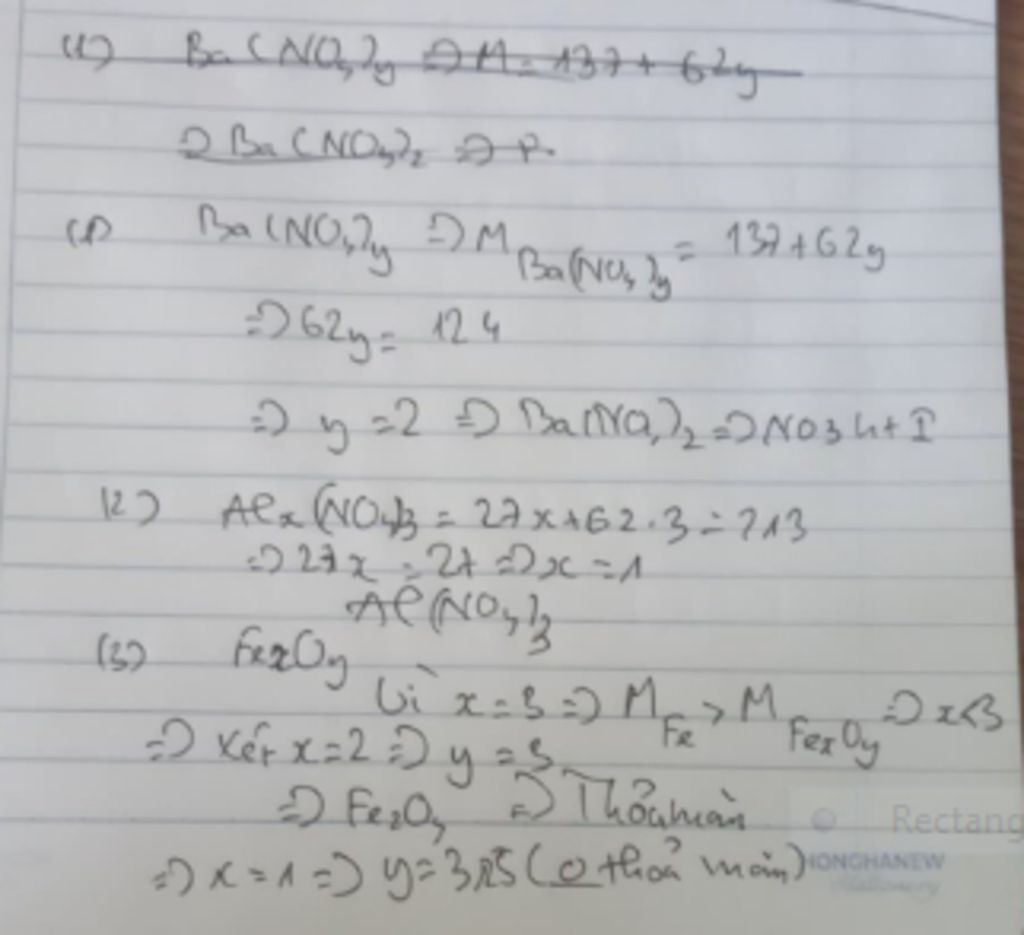 (1) Ba(NO3)y => M = 137 + 62y
=> Ba(NO3)2 =>
(1) Ba(NO3)y => M Ba(NO3)y = 137 + 62y
=> 62y = 124
=> y = 2 => Ba(NO3)2 => NO3 h+ I
(2) Alx(NO3)3 = 27x + 62.3 = 213
=> 27x = 27 => x = 1
Al(NO3)3
(3) FexOy
Vì x = 3 => M Fe > M FexOy => x<3
=> Xét x = 2 => y = 3
=> Fe2O3 => Thỏa mãn
=> x = 1 => y = 3,25 (0 thoả mãn)
Rectang
HONGHANEW
Stationery